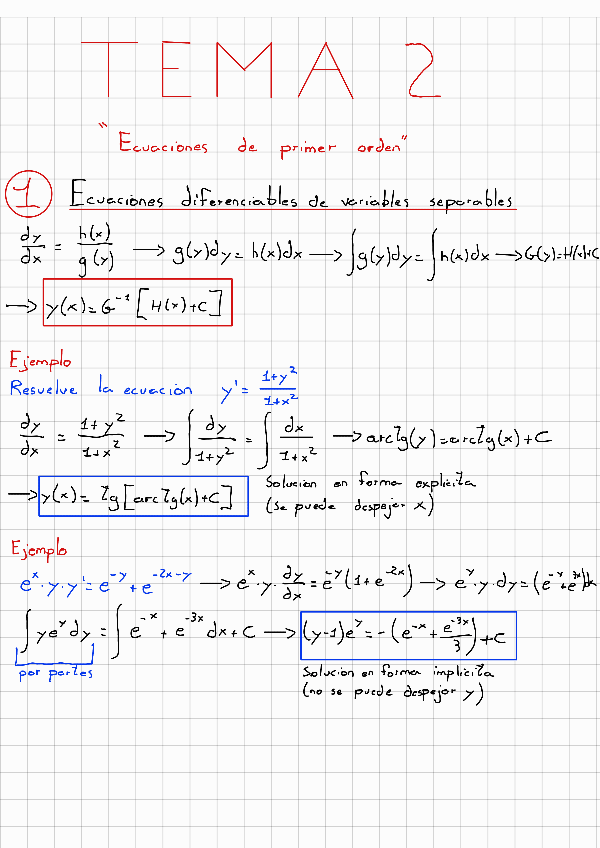 TEMA 2
"Ecuaciones de primer orden"
1 Ecuaciones diferenciables de variables separables
dy/dx = h(x)/g(y) → g(y)dy = h(x)dx → ∫g(y)dy = ∫h(x)dx → G(y)=H(x)+C
→ y(x) = G⁻¹[H(x)+C]
Ejemplo
Resuelve la ecuación y' = (1+y²)/(1+x²)
dy/dx = (1+y²)/(1+x²) → ∫ dy/(1+y²) = ∫ dx/(1+x²) → arctg(y) = arctg(x) + C
→ y(x) = tg[arctg(x)+C] Solución en forma explícita
(se puede despejar x)
Ejemplo
eˣ·y·y' = e⁻ʸ + e⁻²ˣ⁻ʸ → eˣ·y·dy/dx = e⁻ʸ(1+e⁻²ˣ) → eʸ·y·dy = (e⁻ʸ+e⁻³ˣ)dx
∫yeʸdy = ∫e⁻ˣ + e⁻³ˣ dx + C → (y-1)eʸ = -(e⁻ˣ + e⁻³ˣ/3) + C
por partes
Solución en forma implícita
(no se puede despejar y)